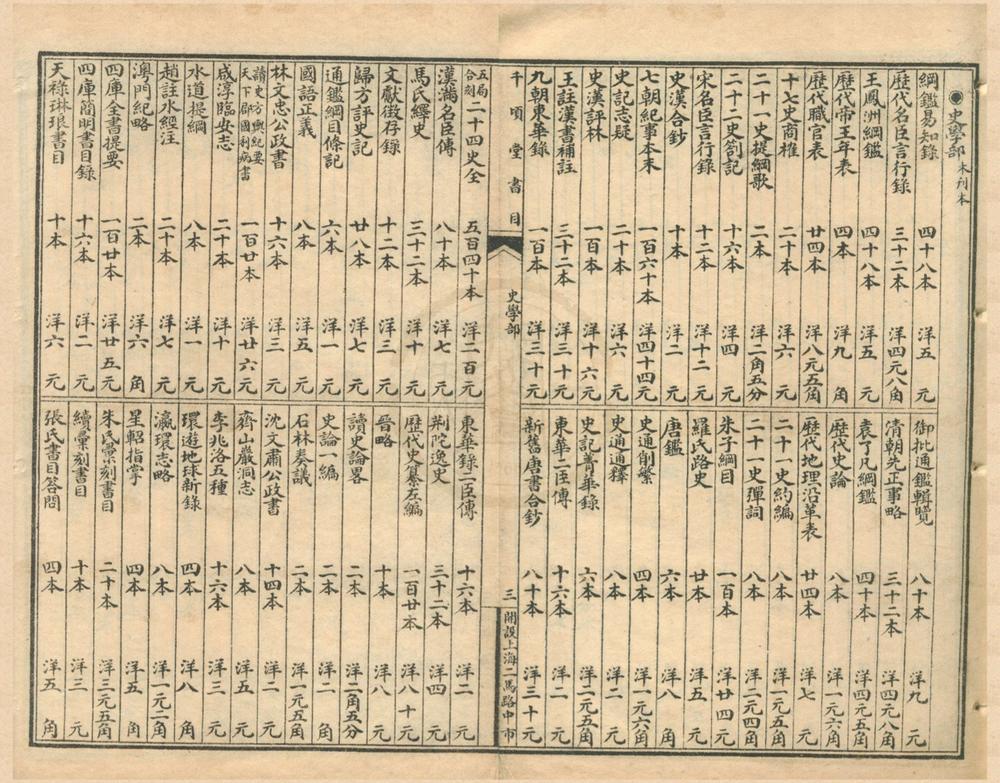 ◉史學部 木刊本
綱鑑易知錄 四十八本 洋五元
歷代名臣言行錄 三十二本 洋四元八角
王鳳洲綱鑑 四十八本 洋五元
歷代帝王年表 四本 洋九角
歷代職官表 廿四本 洋八元五角
十七史商榷 二十本 洋六元
二十一史提綱歌 二本 洋二角五分
二十二史劄記 十六本 洋四元
宋名臣言行錄 十二本 洋十二元
史漢合鈔 十本 洋二元
七朝紀事本末 一百六十本 洋四十四元
史記志疑 二十本 洋六元
史漢評林 一百本 洋十六元
王註漢書補註 三十二本 洋三十元
九朝東華錄 一百本 洋三十元
御批通鑑輯覽 八十本 洋九元
清朝先正事略 三十二本 洋四元八角
袁了凡綱鑑 四十本 洋四元五角
歷代史論 八本 洋一元六角
歷代地理沿革表 廿四本 洋七元
二十一史約編 八本 洋一元五角
二十一史彈詞 八本 洋二元四角
朱子綱目 一百本 洋廿四元
羅氏路史 廿本 洋五元
唐鑑 六本 洋八角
史通削繁 四本 洋一元六角
史通通釋 八本 洋二元
史記菁華錄 六本 洋二元五角
東華二臣傳 十六本 洋二元
新舊唐書合鈔 八十本 洋三十元
千頃堂書目 史學部 三 開設上海二馬路中市
五局合刻二十四史全 五百四十本 洋二百元
漢滿名臣傳 八十本 洋七元
馬氏繹史 三十二本 洋十元
文獻徵存錄 十二本 洋三元
歸方評史記 廿八本 洋七元
通鑑綱目條記 六本 洋一元
國語正義 八本 洋五元
林文忠公政書 十六本 洋三元
讀史方輿紀要天下郡國利病書 一百廿本 洋廿六元
咸淳臨安志 二十本 洋十元
水道提綱 八本 洋一元
趙註水經注 二十本 洋七元
澳門紀略 二本 洋六角
四庫全書提要 一百廿本 洋廿五元
四庫簡明書目錄 十六本 洋二元
天祿琳琅書目 十本 洋六元
東華錄二臣傳 十六本 洋二元
荆陀逸史 三十二本 洋四元
歷代史纂左編 一百廿本 洋八十元
晉略 十本 洋八元
讀史論畧 二本 洋二角五分
史論一編 二本 洋二角
石林奏議 二本 洋一元五角
沈文肅公政書 十四本 洋二元
齊山巖洞志 八本 洋五元
李兆洛五種 十六本 洋三元
環遊地球新錄 四本 洋八角
瀛環志略 八本 洋一元二角
星軺指掌 四本 洋五角
朱氏彙刻書目 二十本 洋三元五角
續彙刻書目 十本 洋三元
張氏書目答問 四本 洋五角